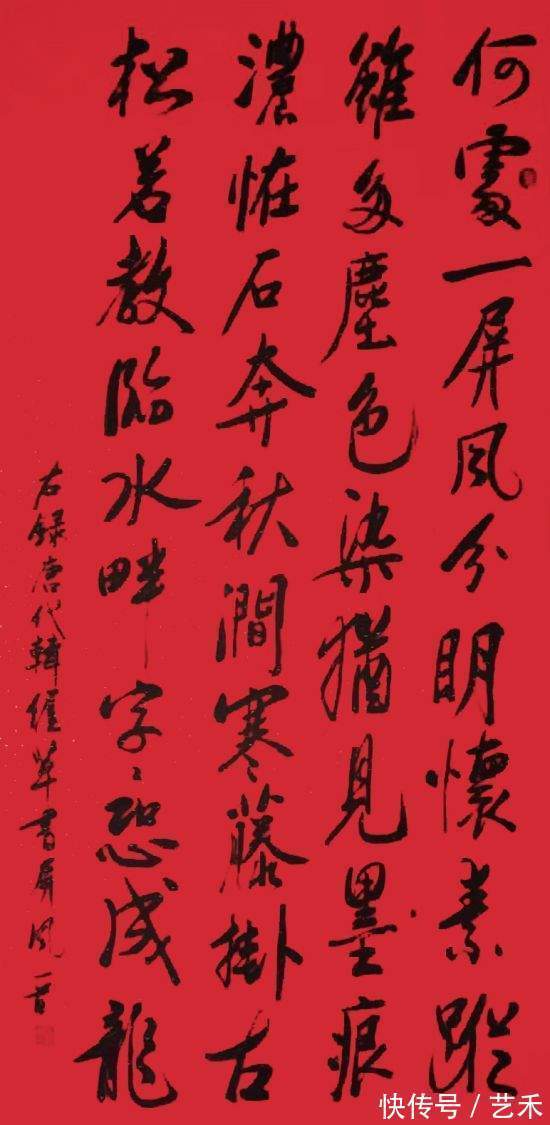 何處一屏風分明懷素蹤
雖多塵色染猶見墨痕
濃恠石奔秋澗寒藤掛古
松若教臨水畔字〻恐成龍
右録唐代韓偓草書屏風一首
快传号 / 艺禾